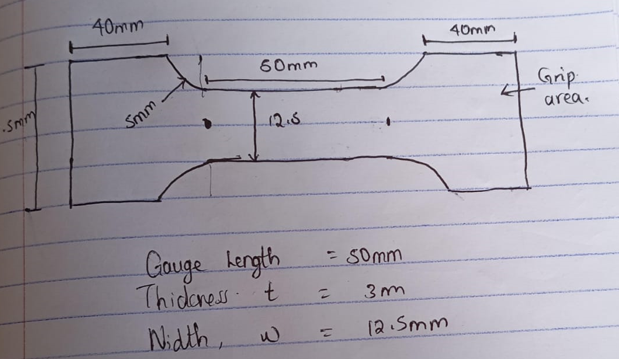 40mm
40mm
60mm
Grip
area.
5mm
12.5
.5mm
Gauge Length = 50mm
Thickness t = 3m
Width, w = 12.5mm